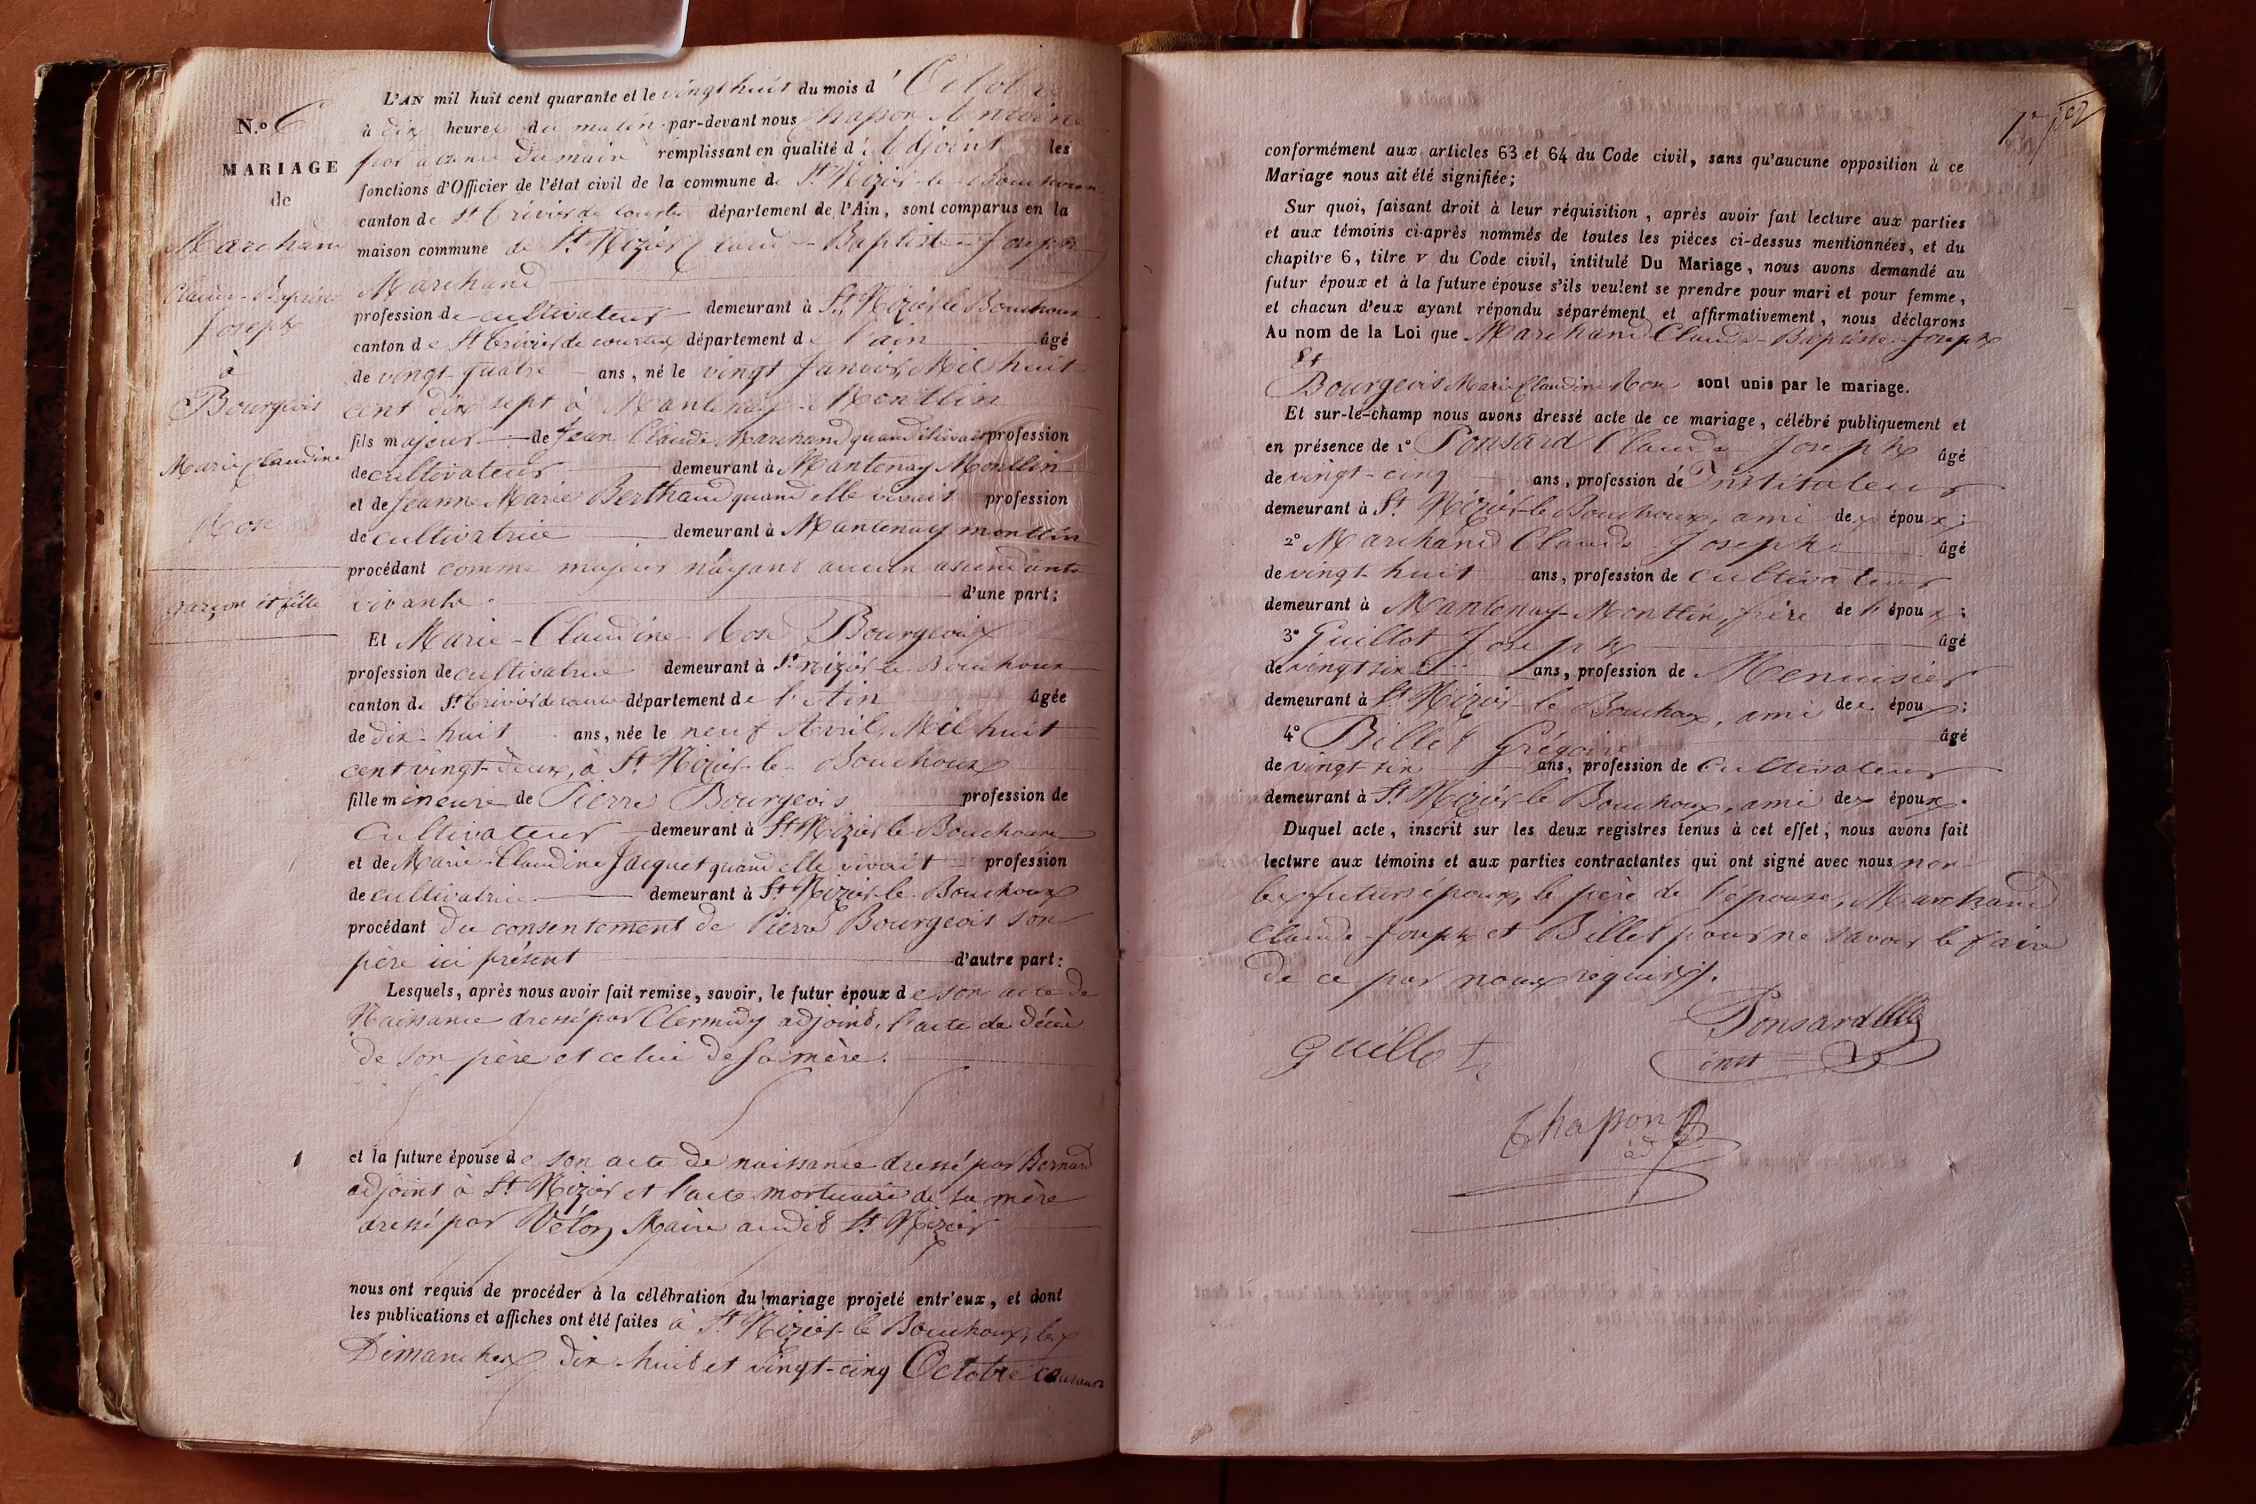 N.º 6
MARIAGE
de
Marchand
Claude-Baptiste
Joseph
à
Bourgeois
Marie Claudine
Rose
garçon et fille
L'AN mil huit cent quarante et le vingt huit du mois d'Octobre
à dix heures du matin par-devant nous Chapon Antoine
par absence du maire remplissant en qualité d'Adjoint les
fonctions d'Officier de l'état civil de la commune de St Nizier-le-Bouchoux
canton de St Trivier de Courtes département de l'Ain, sont comparus en la
maison commune de St Nizier Claude-Baptiste-Joseph
Marchand
profession de cultivateur demeurant à St Nizier le Bouchoux
canton de St Trivier de courtes département de l'ain âgé
de vingt-quatre ans, né le vingt Janvier Mil huit
cent dix sept à Mantenay-Montlin
fils majeur de Jean Claude Marchand quand il vivait profession
de cultivateur demeurant à Mantenay Montlin
et de Jeanne Marie Berthaud quand elle vivait profession
de cultivatrice demeurant à Mantenay montlin
procédant comme majeur n'ayant aucun ascendants
vivants. d'une part;
Et Marie-Claudine-Rose Bourgeois
profession de cultivatrice demeurant à St nizier le Bouchoux
canton de St Trivier de courtes département de l'Ain âgée
de dix-huit ans, née le neuf Avril Mil huit
cent vingt-deux, à St Nizier-le-Bouchoux
fille mineure de Pierre Bourgeois profession de
Cultivateur demeurant à St Nizier le Bouchoux
et de Marie-Claudine Jacquet quand elle vivait profession
de cultivatrice demeurant à St Nizier-le-Bouchoux
procédant du consentement de Pierre Bourgeois son
père ici présent d'autre part;
Lesquels, après nous avoir fait remise, savoir, le futur époux de son acte de
Naissance dressé par Clermidy adjoint, l'acte de décès
de son père et celui de sa mère.
et la future épouse de son acte de naissance dressé par Bernard
adjoint à St Nizier et l'acte mortuaire de sa mère
dressé par Velon Maire audit St Nizier
nous ont requis de procéder à la célébration du mariage projeté entr'eux, et dont
les publications et affiches ont été faites à St Nizier-le Bouchoux, les
Dimanches dix-huit et vingt-cinq Octobre courant
conformément aux articles 63 et 64 du Code civil, sans qu'aucune opposition à ce
Mariage nous ait été signifiée;
Sur quoi, faisant droit à leur réquisition, après avoir fait lecture aux parties
et aux témoins ci-après nommés de toutes les pièces ci-dessus mentionnées, et du
chapitre 6, titre v du Code civil, intitulé Du Mariage, nous avons demandé au
futur époux et à la future épouse s'ils veulent se prendre pour mari et pour femme,
et chacun d'eux ayant répondu séparément et affirmativement, nous déclarons
Au nom de la Loi que Marchand Claude-Baptiste-Joseph
Et
Bourgeois Marie Claudine Rose sont unis par le mariage.
Et sur-le-champ nous avons dressé acte de ce mariage, célébré publiquement et
en présence de 1º Ponsard Claude Joseph âgé
de vingt-cinq ans, profession de Instituteur
demeurant à St Nizier-le Bouchoux, ami des époux;
2º Marchand Claude Joseph âgé
de vingt-huit ans, profession de cultivateur
demeurant à Mantenay-Montlin, frère de l'époux;
3º Guillot Joseph âgé
de vingt six ans, profession de Menuisier
demeurant à St Nizier-le Bouchoux, ami des époux;
4º Billet Grégoire âgé
de vingt-six ans, profession de Cultivateur
demeurant à St Nizier le Bouchoux, ami des époux.
Duquel acte, inscrit sur les deux registres tenus à cet effet, nous avons fait
lecture aux témoins et aux parties contractantes qui ont signé avec nous non
les futurs époux, le père de l'épouse, Marchand
Claude-Joseph et Billet pour ne savoir le faire
de ce par nous requis.
Ponsard
inst
Guillot
Chapon
adj